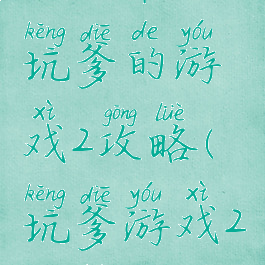 kēng diē de yóu
坑爹的游
xì gōng lüè
戏2攻略(
kēng diē yóu xì
坑爹游戏2